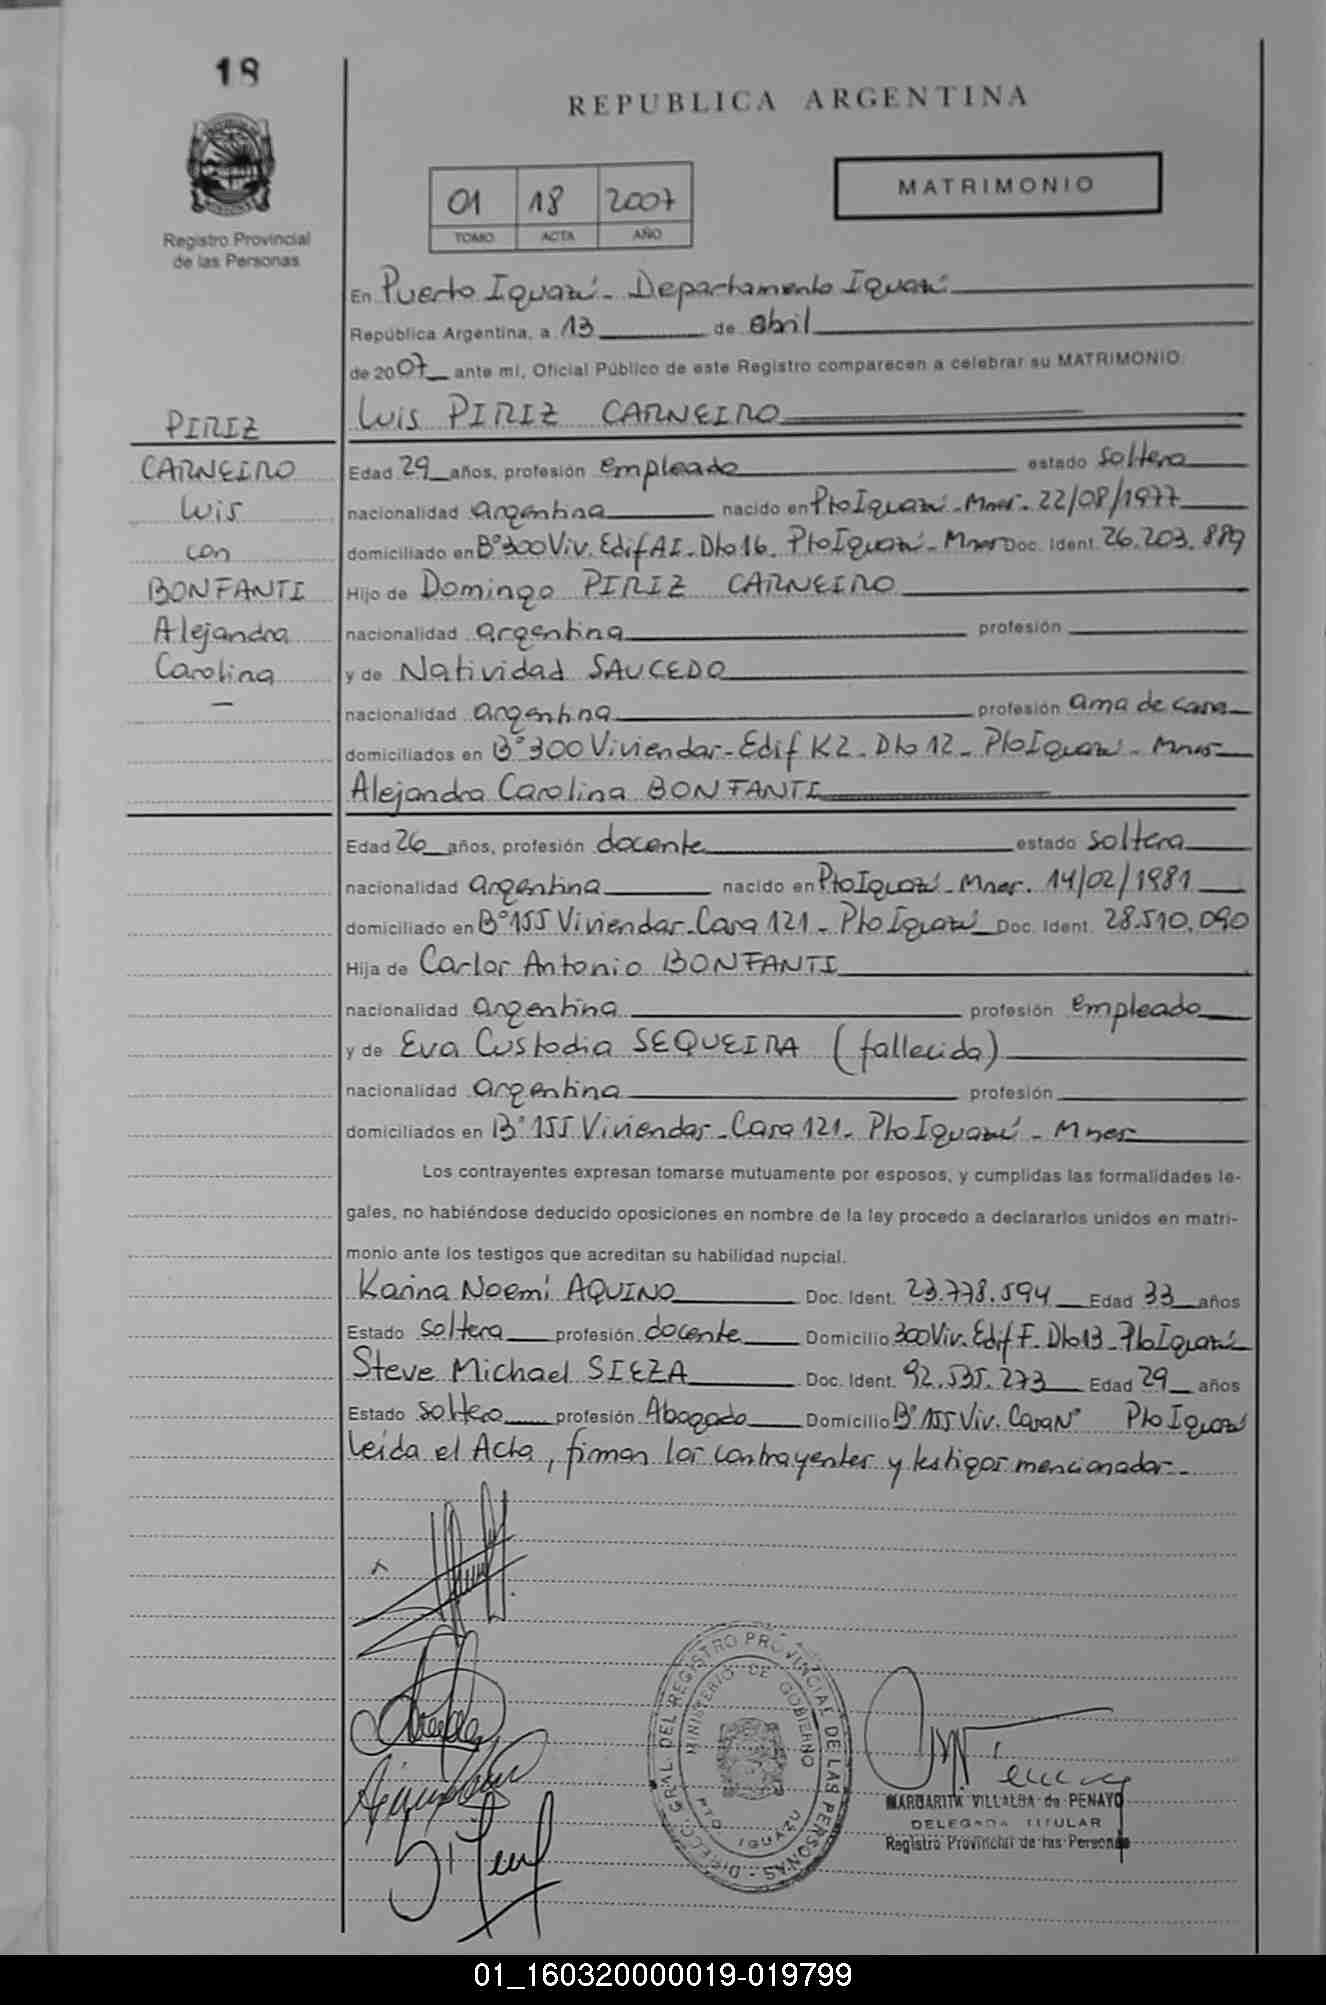 18
REPUBLICA ARGENTINA
Registro Provincial
de las Personas
01 18 2007
TOMO ACTA AÑO
MATRIMONIO
En Puerto Iguazú - Departamento Iguazú
República Argentina, a 13 de abril
de 2007 ante mi, Oficial Público de este Registro comparecen a celebrar su MATRIMONIO:
PIRIZ
CARNEIRO
Luis
con
BONFANTI
Alejandra
Carolina
Luis PIRIZ CARNEIRO
Edad 29 años, profesión empleado estado soltero
nacionalidad argentina nacido en Pto Iguazú - Mnes. 22/08/1977
domiciliado en B° 300 Viv. Edif AI - Dto 16. Pto Iguazú - Mnes Doc. Ident. 26.203.889
Hijo de Domingo PIRIZ CARNEIRO
nacionalidad argentina profesión
y de Natividad SAUCEDO
nacionalidad argentina profesión ama de casa
domiciliados en B° 300 Viviendas - Edif K2 - Dto 12 - Pto Iguazú - Mnes
Alejandra Carolina BONFANTI
Edad 26 años, profesión docente estado soltera
nacionalidad argentina nacido en Pto Iguazú - Mnes. 14/02/1981
domiciliado en B° 155 Viviendas - Casa 121 - Pto Iguazú Doc. Ident. 28.510.090
Hija de Carlos Antonio BONFANTI
nacionalidad argentina profesión empleado
y de Eva Custodia SEQUEIRA (fallecida)
nacionalidad argentina profesión
domiciliados en B° 155 Viviendas - Casa 121 - Pto Iguazú - Mnes
Los contrayentes expresan tomarse mutuamente por esposos, y cumplidas las formalidades le-
gales, no habiéndose deducido oposiciones en nombre de la ley procedo a declararlos unidos en matri-
monio ante los testigos que acreditan su habilidad nupcial.
Karina Noemí AQUINO Doc. Ident. 23.778.594 Edad 33 años
Estado soltera profesión docente Domicilio 300 Viv. Edif F - Dto 13 - Pto Iguazú
Steve Michael SIEZA Doc. Ident. 92.535.273 Edad 29 años
Estado soltero profesión Abogado Domicilio B° 155 Viv. Casa N° Pto Iguazú
Leída el Acta, firman los contrayentes y testigos mencionados -
DIRECC. GRAL. DEL REGISTRO PROVINCIAL DE LAS PERSONAS -
MINISTERIO DE GOBIERNO
PTO. IGUAZU
MARGARITA VILLALBA de PENAYO
DELEGADA TITULAR
Registro Provincial de las Personas
01_160320000019-019799